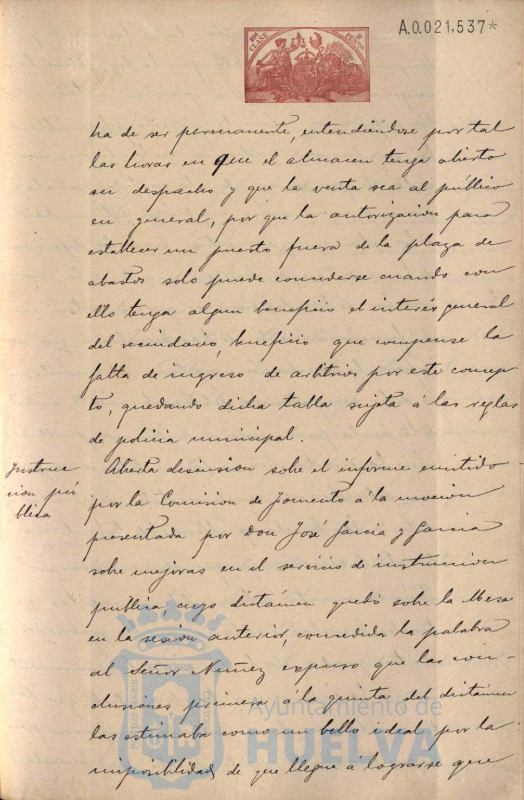 A.0.021,537*
10ª CLASE
PESETAS
ha de ser permanente, entendiéndose por tal
las horas en que el almacen tenga abierto
su despacho y que la venta sea al público
en general, por que la autorizacion para
establecer un puesto fuera de la plaza de
abastos solo puede concederse cuando con
ello tenga algun beneficio el interés general
del vecindario, beneficio que compense la
falta de ingreso de arbitrios por este concep-
to, quedando dicha tabla sujeta á las reglas
de policia municipal.
Instruc
cion pú
blica
Abierta discusion sobre el informe emitido
por la Comision de Fomento á la mocion
presentada por Don José Garcia y Garcia
sobre mejoras en el servicio de instruccion
publica cuyo dictámen quedó sobre la Mesa
en la sesion anterior, concedida la palabra
al Señor Nuñez expuso que las con-
clusiones primera á la quinta del dictámen
las estimaba como un bello ideal por la
imposibilidad de que llegue á lograrse que
Ayuntamiento de
HUELVA